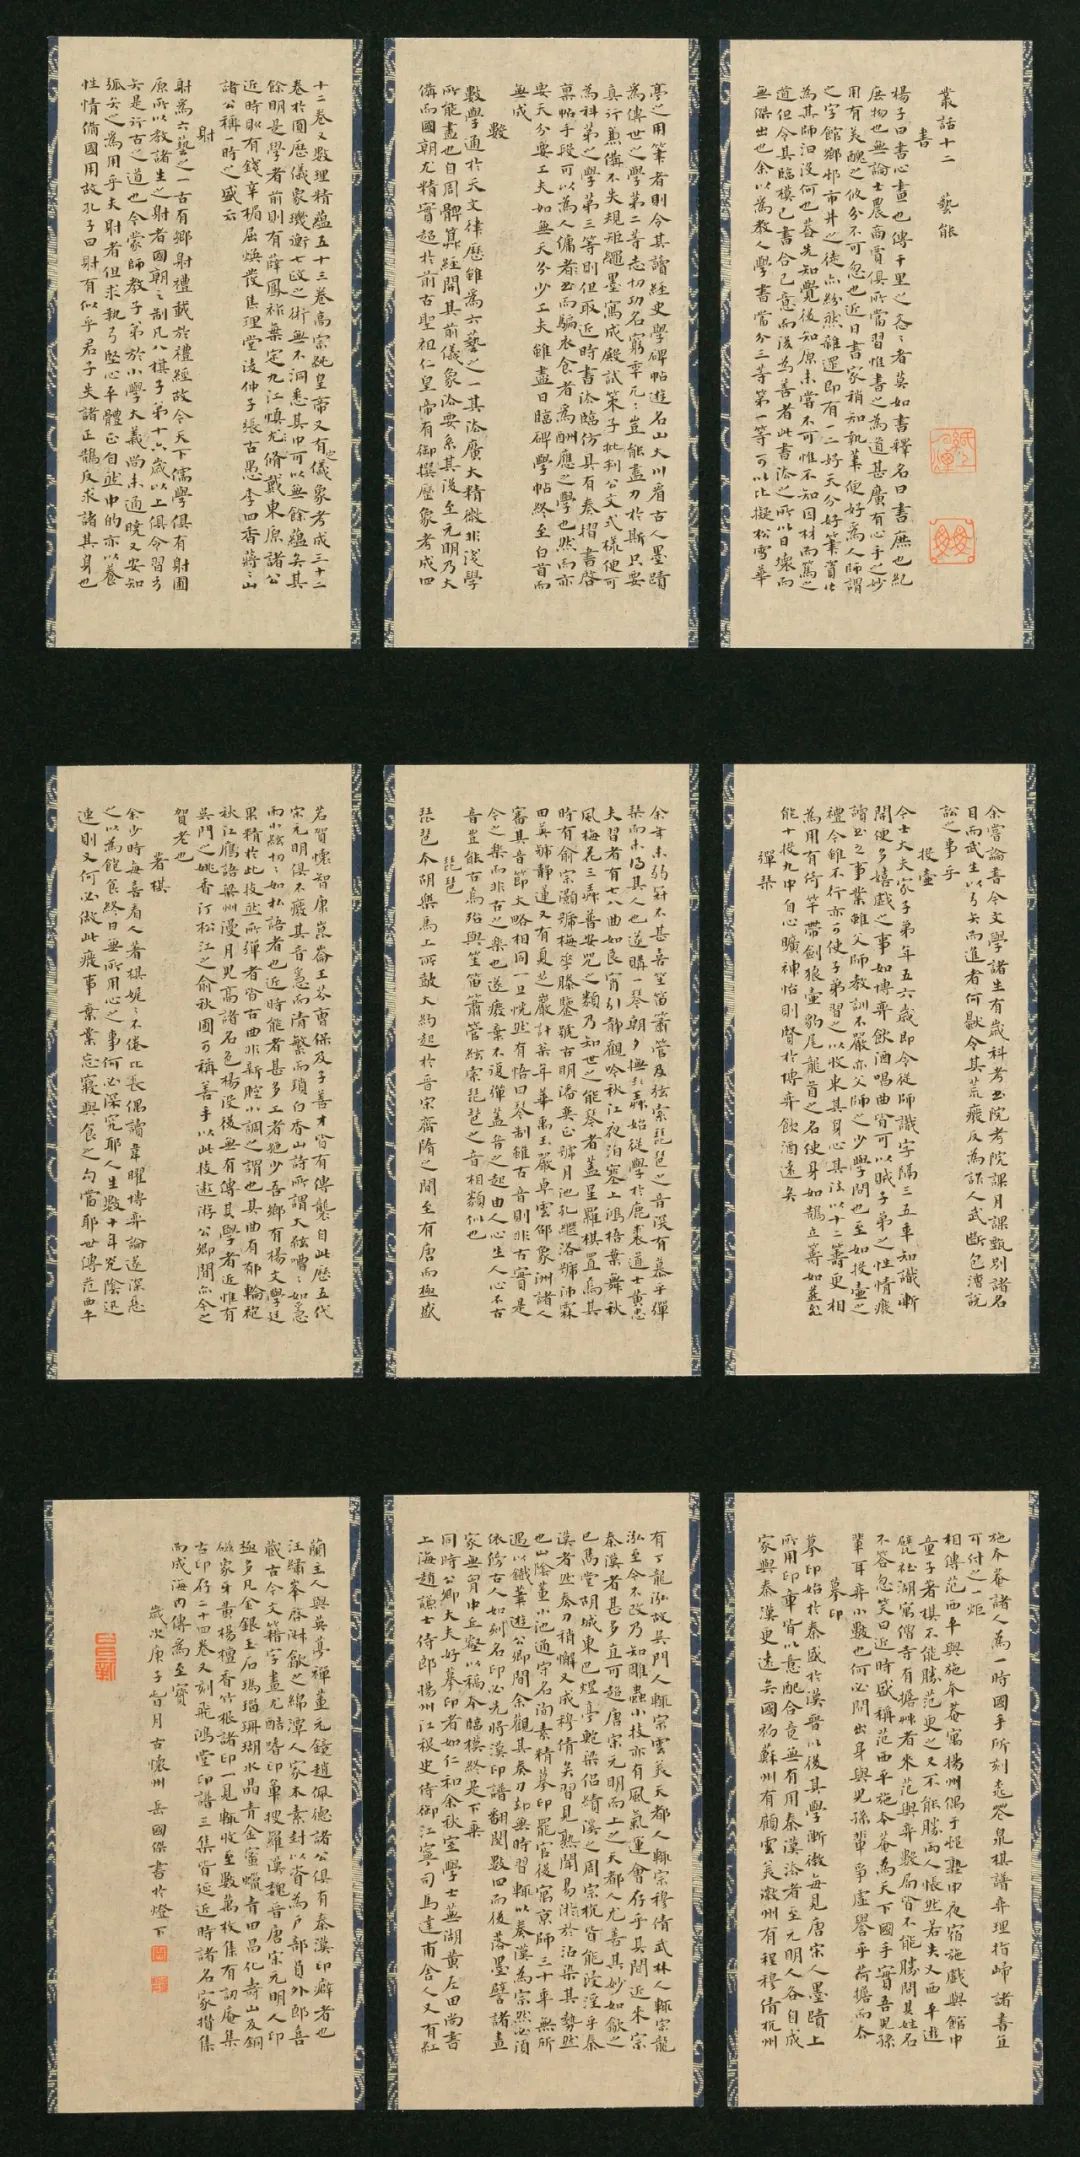 叢話十二 藝能
書
楊子曰書心畫也傳千里之忞〻者莫如書釋名曰書庶也紀
庶物也無論士農商賈俱所當習惟書之為道甚廣有心手之妙
用有美醜之攸分不可忽也近日書家稍知執筆便好為人師謂
之字館鄉邨市井之徒亦紛然雜遝即有一二好天分好筆資皆
為其師汩沒何也蓋先知覺後知原未嘗不可惟不知因材而篤之
道但令其臨模己書合己意而後為善者此書法之所以日壞而
無傑出也余以為教人學書當分三等第一等可以比擬松雪華
亭之用筆者則令其讀經史學碑帖遊名山大川看古人墨蹟
為傳世之學第二等志切功名窮年兀〻豈能盡力於斯只要
真行兼備不失規矩繩墨寫成殿試策子批判公文式樣便可
為科第之學第三等則但取近時書法臨仿具有奏摺書啓
稟帖手段可以為人傭書而騙衣食者為酬應之學也然而亦
要天分要工夫如無天分少工夫雖盡日臨碑學帖終至白首而
無成
數
數學通於天文律歷雖為六藝之一其法廣大精微非淺學
所能盡也自周髀算經開其前儀象法要系其後至元明乃大
備而國朝尤精實超於前古聖祖仁皇帝有御撰歷象考成四
十二卷又數理精蘊五十三卷高宗純皇帝又有儀象考成三十二
卷於圜歷儀象璣衡七政之術無不洞悉其中可以無餘蘊矣其
餘明是學者前則有薛鳳祚葉定九江慎脩戴東原諸公
近時則有錢辛楣屈煥發焦理堂淩仲子張古愚李四香蔣〻山
諸公稱一時之盛云
射
射為六藝之一古有鄉射禮載於禮經故今天下儒學俱有射圃
原所以教諸生之射者國朝之制凡八旗子弟十六歲以上俱令習弓
矢是行古之道也今蒙師教子弟於小學大義尚未通曉又安知
弧矢之為用乎夫射者但求執弓堅心平體正自然中的亦以養
性情備國用故孔子曰射有似乎君子失諸正鵠反求諸其身也
余嘗論書今文學諸生有歲科考書院考院課月課甄別諸名
目而武生以弓矢而進者何獨令其荒廢反為詐人武斷包漕說
訟之事乎
投壺
今士大夫家子弟年五六歲即令從師識字隔三五年知識漸
開便多嬉戲之事如博弈飲酒唱曲皆可以賊子弟之性情廢
讀書之事業雖父師教訓不嚴亦父師之少學問也至如投壺之
禮今雖不行亦可使子弟習之以收束其身心其法以十二籌更相
為用有倚竿帶劍狼壺豹尾龍首之名使身如鵠立籌如燕飛
能十投九中自心曠神怡則賢於博弈飲酒遠矣
彈琴
余年未弱冠不甚喜笙笛簫管及弦索琵琶之音深有慕乎彈
琴而未得其人也遂購一琴朝夕撫弄始從學於鹿裘道士黃忠
夫習者有七八曲如良宵引靜觀吟秋江夜泊塞上鴻梧葉舞秋
風梅花三弄普安咒之類乃知世之能琴者蓋星羅棋置焉其
時有俞宗灝號梅華滕鑒號古明潘奕正號月池孔繼洛號沛霖
田英號靜蓮又有夏芝巖計某年華禹玉嚴卓雲邵象洲諸人
審其音節大略相同一旦恍然有悟曰琴制雖古音則非古實是
今之樂而非古之樂也遂廢棄不復彈蓋音之起由人心生人心不古
音豈能古焉殆與笙笛簫管絃索琵琶之音相類似也
琵琶
琵琶本胡樂馬上所鼓大約起於晉宋齊隋之間至有唐而極盛
若賀懷智康崑崙王芬曹保及子善才皆有傳襲自此歷五代
宋元明俱不廢其音急而清繁而瑣白香山詩所謂大絃嘈〻如急
雨小絃切〻如私語者也近時能者甚多工者絕少吾鄉有楊文學廷
果精於此技然所彈者皆古曲非新腔小調之謂也其曲有鬱輪袍
秋江鴈語梁州漫月兒高諸名色楊沒後無有傳其學者近惟有
吳門之姚香汀松江之俞秋圃可稱善手以此技遨遊公卿間亦今之
賀老也
著棋
余少時每喜看人著棋娓〻不倦比長偶讀韋曜博弈論遂深惡
之以為飽食終日無所用心之事何必深究耶人生數十年光陰迅
速則又何必做此廢事棄業忘寢與食之勾當耶世傳范西午
施本菴諸人為一時國手所刻桃花泉棋譜弈理指歸諸書直
可付之一炬
相傳范西平與施本菴寓揚州偶于村塾中夜宿施戲與館中
童子者棋不能勝范更之又不能勝兩人悵然若失又西平遊
甓社湖寓僧寺有擔草者來范與弈數局皆不能勝問其姓名
不答忽笑曰近時盛稱范西平施本菴為天下國手實吾兒孫
輩耳弈小數也何必問出身與兒孫輩爭虛譽乎荷擔而去
摹印
摹印始於秦盛於漢晉以後其學漸微每見唐宋人墨蹟上
所用印章皆以意配合竟無有用秦漢法者至元明人各自成
家與秦漢更遠矣國初蘇州有顧雲美徽州有程穆倩杭州
有丁龍泓故吳門人輒宗雲美天都人輒宗穆倩武林人輒宗龍
泓至今不改乃知雕蟲小技亦有風氣運會存乎其間近來宗
秦漢者甚多直可超唐宋元明而上之天都人尤善其妙如歙之
巴雋堂胡城東巴煜亭鮑梁侣績溪之周宗杭皆能浸淫乎秦
漢者然奏刀稍懈又成穆倩矣習見熟聞易於沾染其勢然
也山陰董小池通守名洵素精摹印罷官後寓京師三十年無所
遇以鐵筆遊公卿間余觀其奏刀卻無時習輒以秦漢為宗然必須
依傍古人如刻名印必先將漢印譜翻閱數四而後落墨譬諸畫
家無胷中丘壑以稿本臨模終是下乘
同時公卿大夫好摹印者如仁和余秋室學士蕪湖黃左田尚書
上海趙謙士侍郎揚州江秬史侍御江寧司馬達甫舍人又有紅
蘭主人與英夢禪董元鏡趙佩德諸公俱有秦漢印癖者也
汪繡峯啓淑歙之綿潭人家本素封以貲為戶部員外郎喜
藏古今文籍字畫尤酷嗜印章搜羅漢魏晉唐宋元明人印
極多凡金銀玉石瑪瑙珊瑚水晶青金蜜蠟青田昌化壽山及銅
磁象牙黃楊檀香竹根諸印一見輒收至數萬枚集有訒庵集
古印存二十四卷又刻飛鴻堂印譜三集皆延近時諸名家攢集
而成海內傳為至寶
歲次庚子首月古懷州岳國傑書於燈下